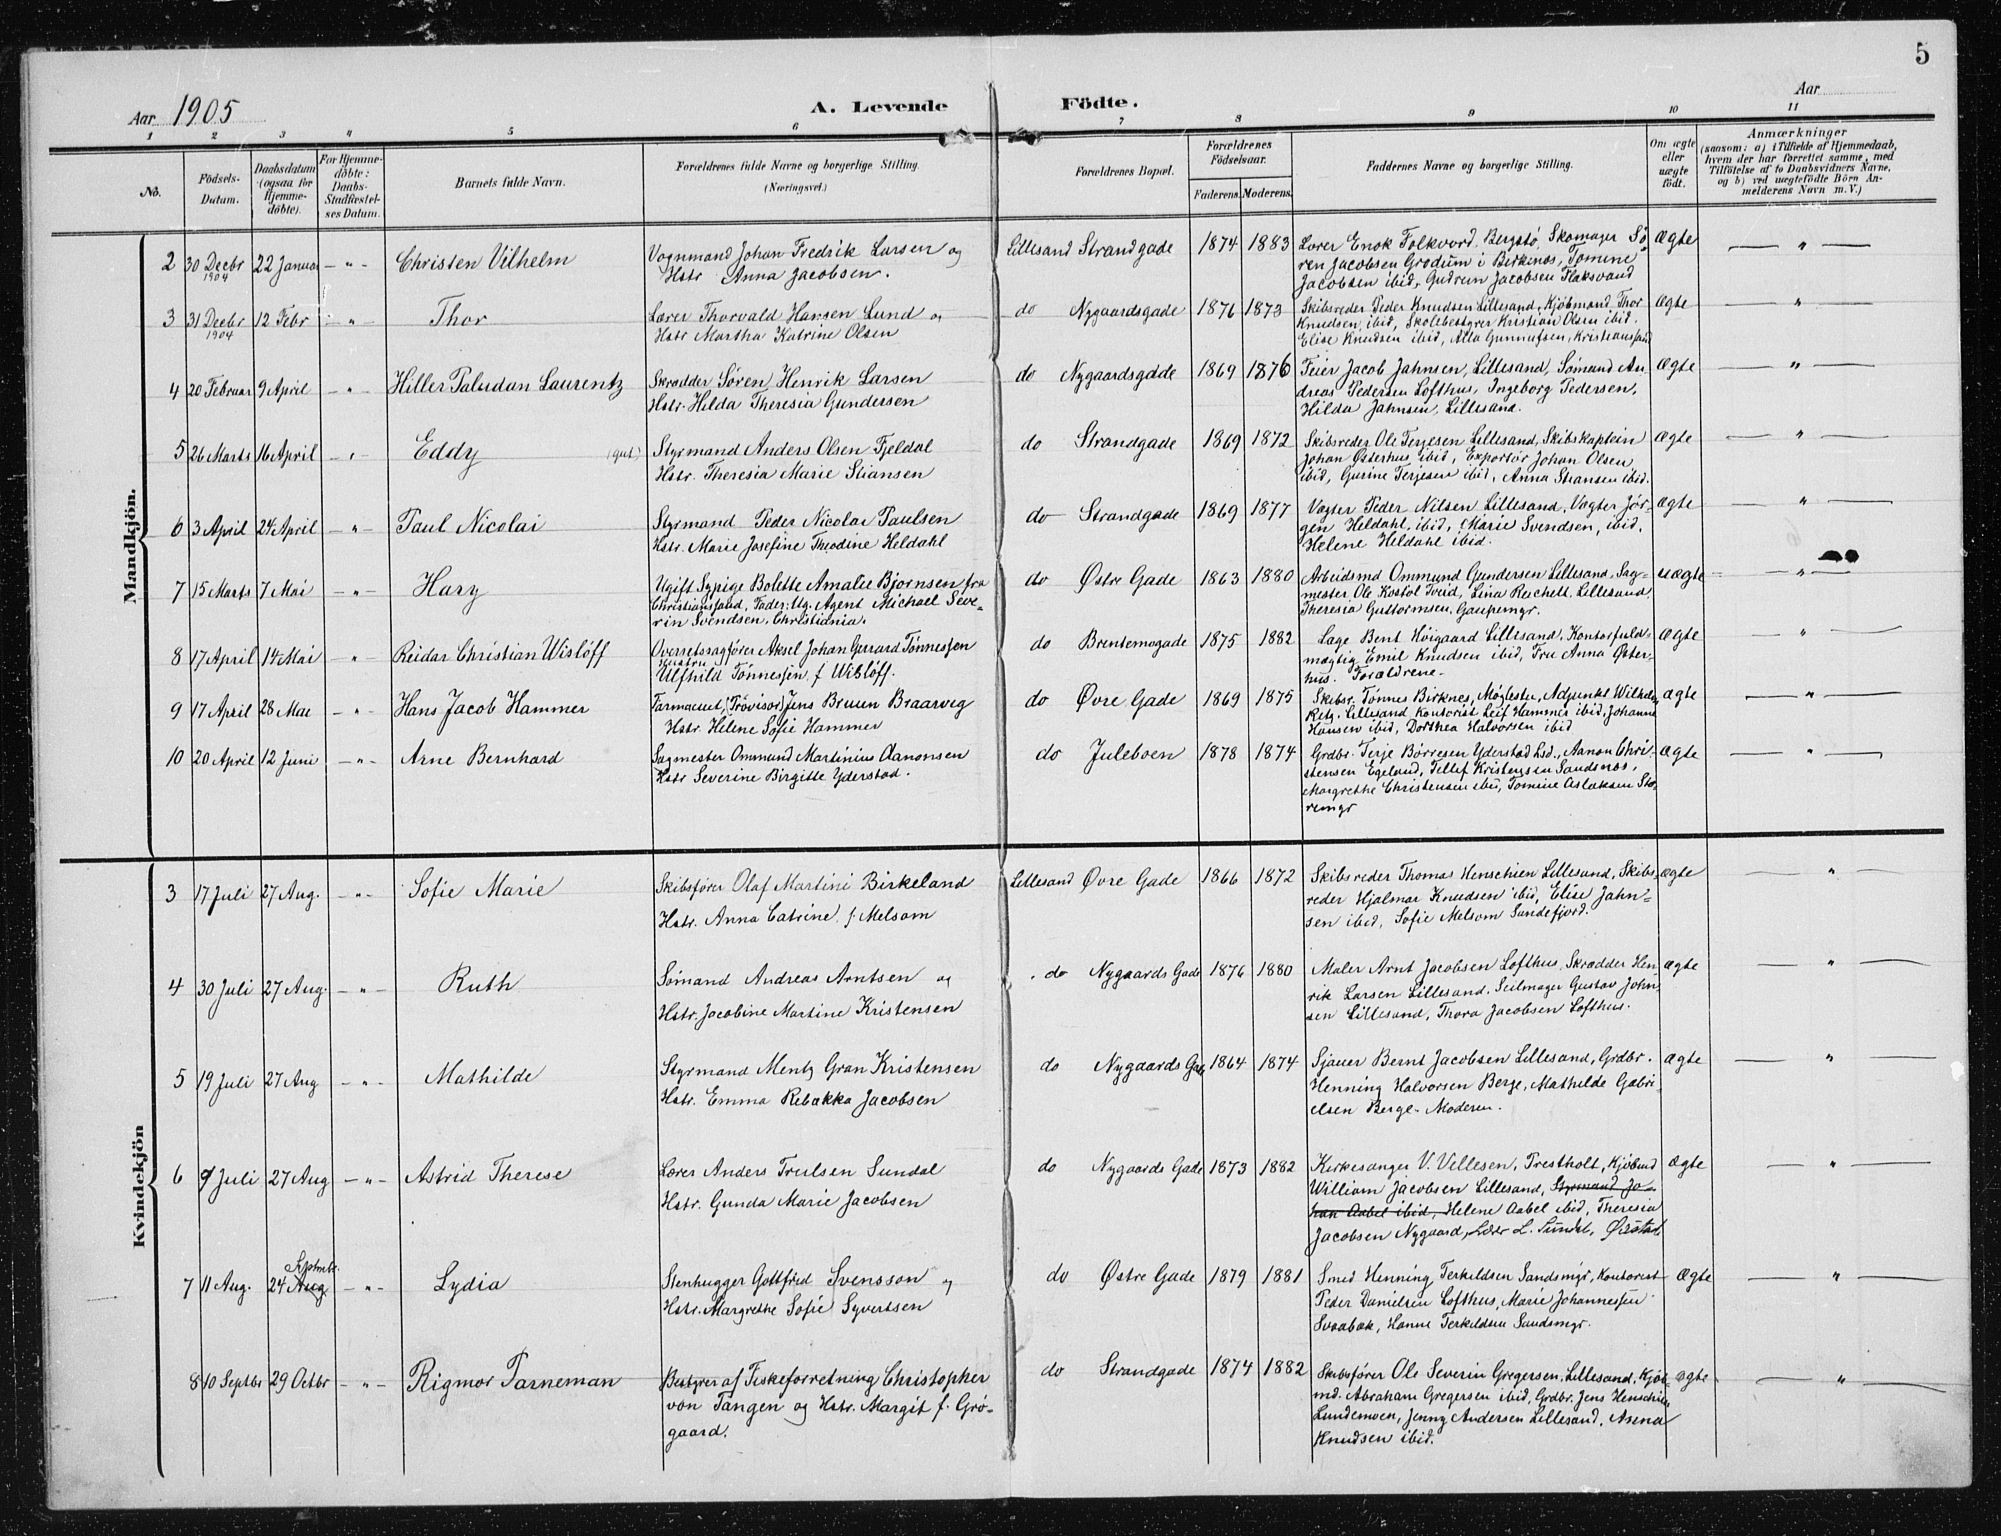 5
Aar 1905
A. Levende Födte.
Aar
1 2 3 " 5 6 7 8 9 10 11
No.
Födsels-Datum.
Daabsdatum (ogsaa for Hjemme-döbte).
For Hjemme-döbte: Daabs-Stadfæstel-ses Datum.
Barnets fulde Navn.
Forældrenes fulde Navne og borgerlige Stilling.
(Næringsvei.)
Forældrenes Bopæl.
Forældrenes Födselsaar.
Faderens. Moderens.
Faddernes Navne og borgerlige Stilling.
Om ægte eller uægte födt.
Anmærkninger
(saasom: a) i Tilfælde af Hjemmedaab, hvem der har forrettet samme, med Tilföielse af to Daabsvidners Navne, og b) ved uægtefödte Börn An-melderens Navn m. V.)
Mandkjön.
2 30 Decbr 1904 22 Januar — " — Christen Vilhelm
Vognmand Johan Fredrik Larsen og
Hstr. Anna Jacobsen.
Lillesand Strandgade 1874 1883
Lærer Enok Folkvord, Bergstø, Skomager Sö-
ren Jacobsen Grødum i Birkenes, Tomine
Jacobsen ibid, Gudrun Jacobsen Flaksvand
Ægte — " —
3 31 Decbr 1904 12 Febr — " — Thor
Lærer Thorvald Hansen Lund og
Hstr Martha Katrine Olsen
do Nygaardsgade 1876 1873
Skibsreder Peder Knudsen Lillesand, Kjöbmand Thor
Knudsen ibid, Skolebestyrer Kristian Olsen ibid.
Elise Knudsen ibid, Alla Gunnufsen, Kristiansand
Ægte — " —
4 20 Februar 9 April — " — Hiller Paludan Laurentz
Skrædder Søren Henrik Larsen
Hstr. Hilda Theresia Gundersen
do Nygaardsgade 1869 1876
Feier Jacob Jahnsen, Lillesand, Sømand An-
dreas Pedersen Lofthus, Ingeborg Pedersen,
Hilda Jahnsen, Lillesand.
Ægte — " —
5 26 Marts 16 April — " — Eddy (gut)
Styrmand Anders Olsen Fjeldal
Hstr. Theresia Marie Stiansen
do Strandgade 1869 1872
Skibsreder Ole Terjesen Lillesand, Skibskaptein
Johan Østerhus ibid, Exportør Johan Olsen
ibid, Gurine Terjesen ibid, Anna Stiansen ibid.
Ægte — " —
6 3 April 24 April — " — Paul Nicolai
Styrmand Peder Nicolai Paulsen
Hstr. Marie Josefine Theodine Heldahl
do Strandgade 1869 1877
Vagter Peder Nilsen Lillesand, Vagter Jör-
gen Heldahl ibid, Marie Svendsen, ibid,
Helene Heldahl ibid.
Ægte — " —
7 15 Marts 7 Mai — " — Hary
Ugift Sypige Bolette Amalie Bjornsen fra
Christiansand, Fader: Ug. Agent Michael Seve-
rin Svendsen, Christiania.
do Østre Gade 1863 1880
Arbeidsmd Ommund Gundersen Lillesand, Sag-
mester Ole Kostøl Tveid, Lina Reichelt, Lillesand
Theresia Guttormsen, Gaupemyr.
uægte — " —
8 17 April 14 Mai — " — Reidar Christian Wislöff
Overretssagfører Aksel Johan Gerrard Tönnessen
Hustru
Ulfhild Tønnessen f Wislöff.
do Brentemogade 1875 1882
Læge Bent Höigaard Lillesand, Kontorfuld-
mægtig Emil Knudsen ibid, Fru Anna Øster-
hus. Forældrene.
Ægte — " —
9 17 April 28 Mai — " — Hans Jacob Hammer
Farmaceut, (Provisor) Jens Bruun Braarvig
Hstr. Helene Sofie Hammer
do Øvre Gade 1869 1875
Skibsr. Tønnes Birknes, Møglestu, Adjunkt Wilhelm
Retz. Lillesand Kontorist Leif Hammer ibid, Johanne
Hansen ibid, Dorthea Halvorsen ibid
ægte — " —
10 20 April 12 Juni — " — Arne Bernhard
Sagmester Ommund Martinius Aanonsen
Hstr Severine Birgitte Yderstad.
do Juleboen 1878 1874
Grdbr. Terje Börresen Yderstad Lsd., Aanon Chri-
stensen Egeland, Tellef Kristensen Sandsnæs,
Margrethe Christensen ibid, Tomine Aslaksen Sto-
remyr
ægte — " —
Kvindekjön
3 17 Juli 27 Aug. — " — Sofie Marie
Skibsfører Olaf Martini Birkeland
Hstr. Anna Catrine f. Melsom
Lillesand Øvre Gade 1866 1872
Skibsreder Thomas Henschien Lillesand, Skibs-
reder Hjalmar Knudsen ibid, Elise Jahn-
sen ibid, Sofie Melsom Sandefjord.
ægte "
4 30 Juli 27 Aug. — " — Ruth
Sømand Andreas Arntsen og
Hstr. Jacobine Martine Kristensen
do Nygaards Gade 1876 1880
Maler Arnt Jacobsen Lofthus, Skrædder Hen-
rik Larsen Lillesand, Seilmager Gustav John-
sen Lillesand, Thora Jacobsen Lofthus.
ægte — " —
5 19 Juli 27 Aug — " — Mathilde
Styrmand Mentz Gran Kristensen
Hstr. Emma Rebakka Jacobsen
do Nygaards Gade 1864 1874
Sjauer Bernt Jacobsen Lillesand, Grdbr.
Henning Halvorsen Berge, Mathilde Gabri-
elsen Berge. Moderen.
ægte — " —
6 9 Juli 27 Aug — " — Astrid Therese
Lærer Anders Trulsen Sundal
Hstr. Gunda Marie Jacobsen
do Nygaards Gade 1873 1882
Kirkesanger V. Vellesen, Prestholt, Kjöbmd
William Jacobsen Lillesand, Styrmand Jo-
han Aabel ibid, Helene Aabel ibid, Theresia
Jacobsen Nygaard, Lærer L. Sundal, Øiestad
Ægte — " —
7 11 Aug. 24 Aug Septmbr. — " — Lydia
Stenhugger Gottfried Svensson og
Hstr. Margrethe Sofie Syvertsen
do Østre Gade 1879 1881
Smed Henning Terkildsen Sandsmyr, Kontorist
Peder Danielsen Lofthus, Marie Johannessen
Svaabæk, Hanne Terkildsen Sandsmyr.
Ægte — " —
8 10 Septbr 29 Octbr — " — Rigmor Parneman
Bestyrer af Fiskeforretning Christopher
von Tangen og Hstr. Margit f. Grø-
gaard.
do Strandgade 1874 1882
Skibsfører Ole Severin Gregersen, Lillesand, Kjöb-
md. Abraham Gregersen ibid, Grdbr. Jens Henschien
Lundemoen, Jenny Andersen Lillesand, Asena
Knudsen ibid.
ægte — " —